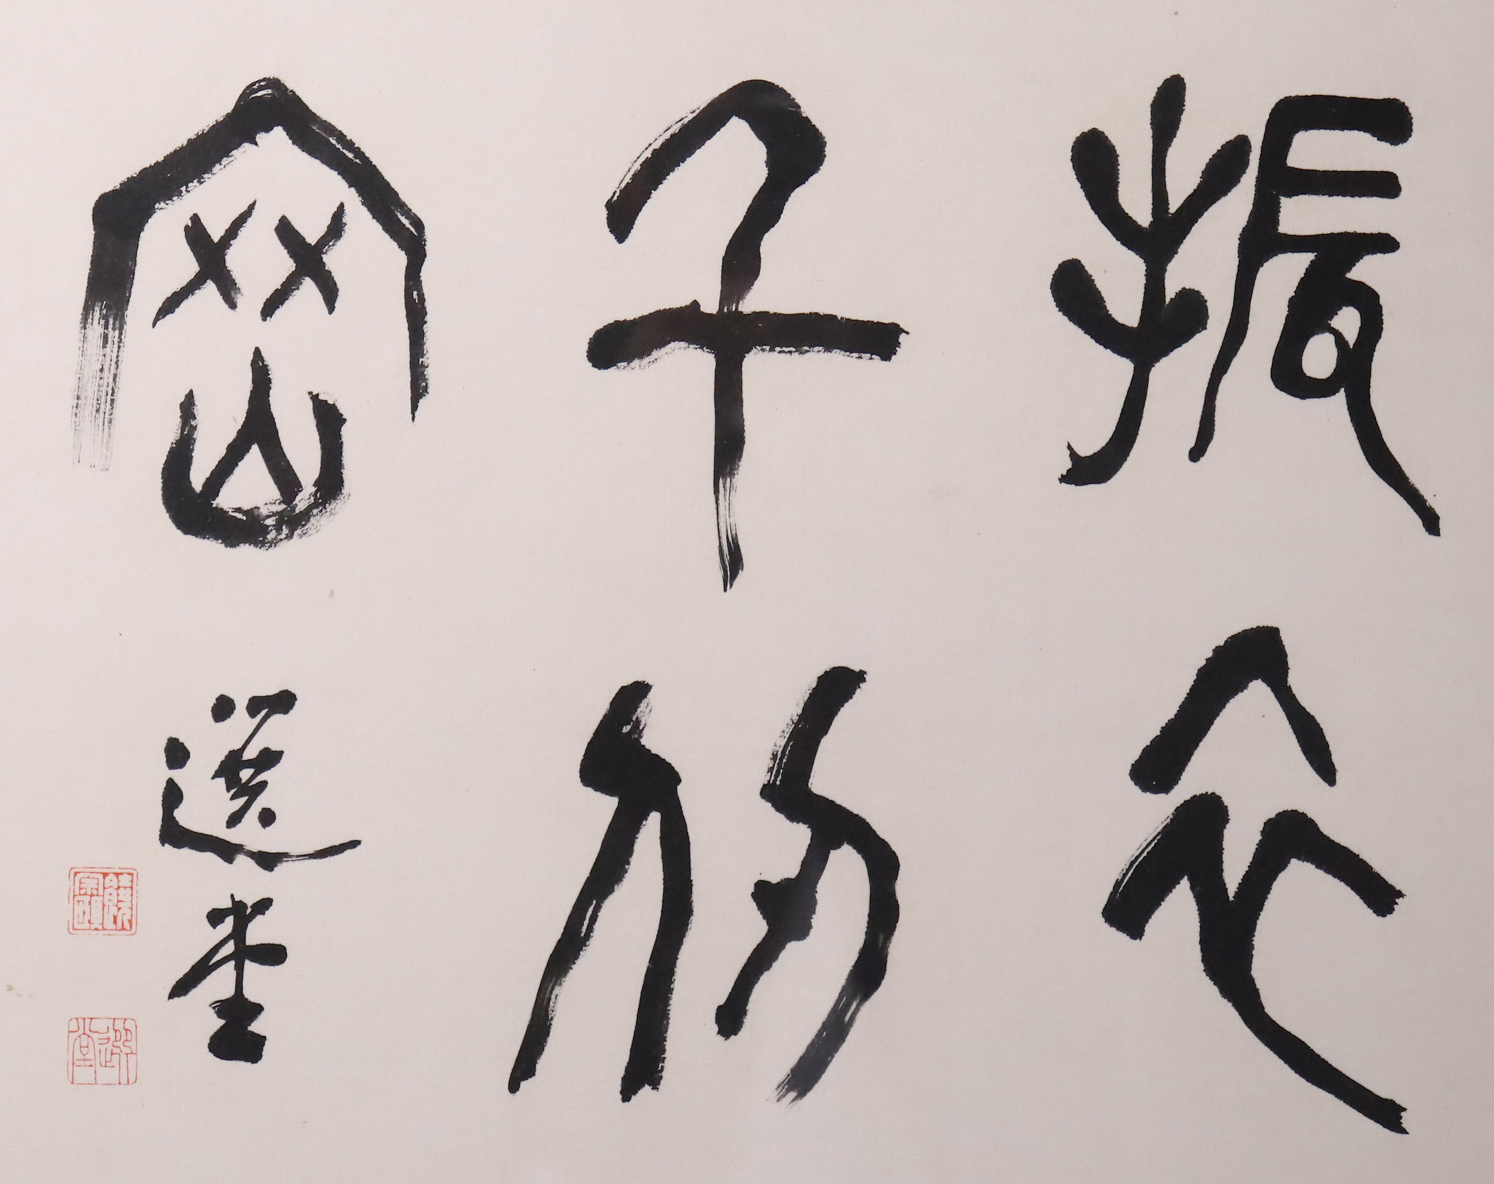 振衣
千仞
岡 選堂
饒宗頤
選堂